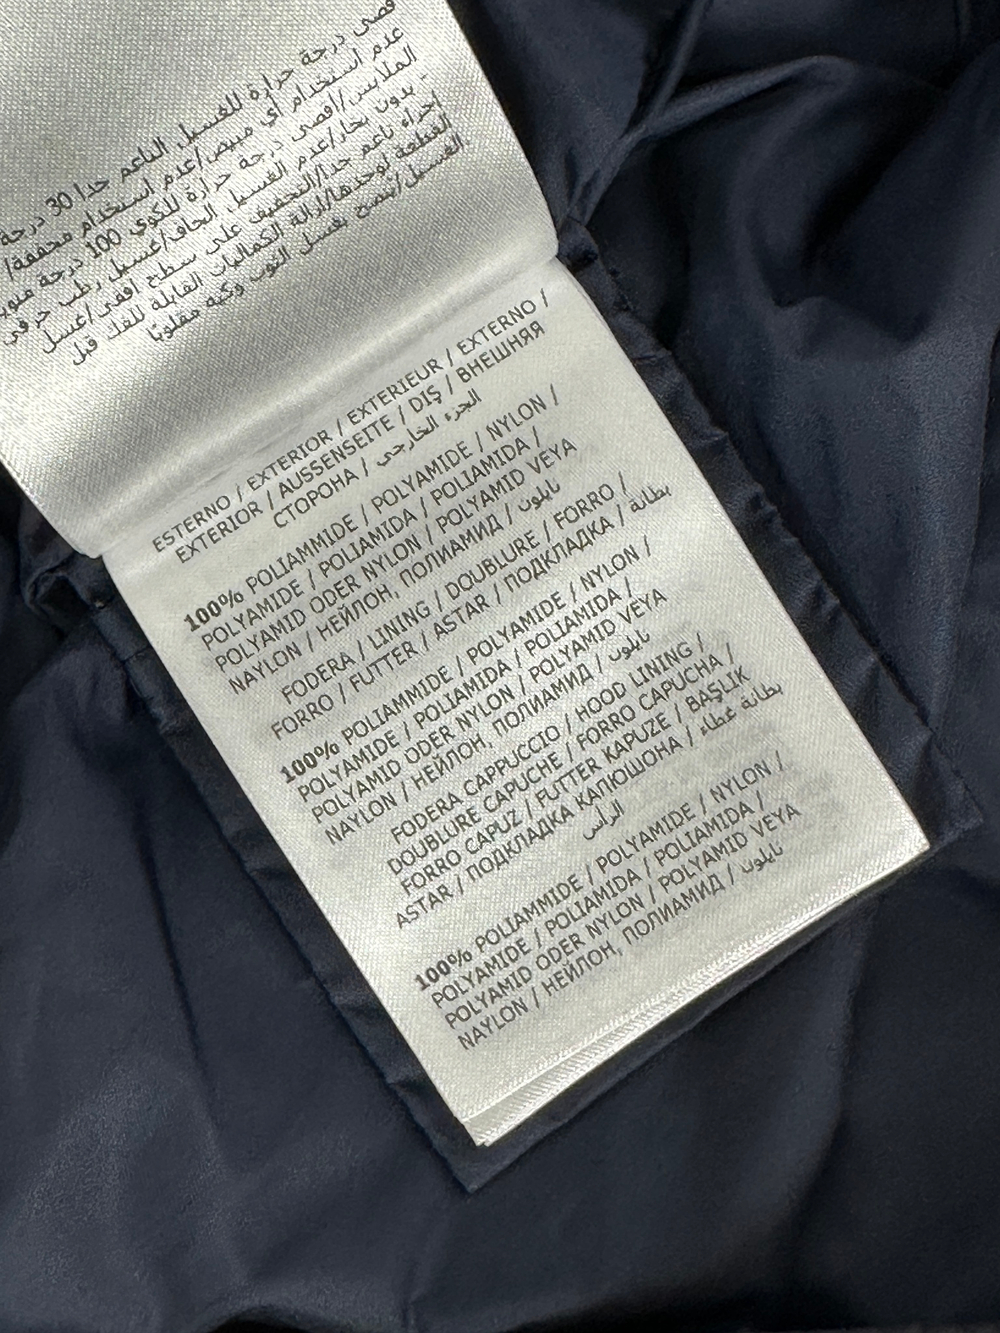 قصى درجة حرارة للغسيل الناعم جدا 30 درجة
عدم استخدام أي مبيض/عدم استخدام مجففة/
الملابس/أقصى درجة حرارة للكوي 100 درجة مئوية
بدون بخار/عدم الغسيل الجاف/غسيل رطب حرفي
إجراء ناعم جدا/التجفيف على سطح افقي/غسل
القطعة لوحدها/إزالة الكماليات القابلة للفك قبل
الغسيل/ينصح بغسل الثوب وكيه مقلوبًا
ESTERNO / EXTERIOR / EXTERIEUR / EXTERNO /
EXTERIOR / AUSSENSEITE / DIŞ / ВНЕШНЯЯ
СТОРОНА / الجزء الخارجي
100% POLIAMMIDE / POLYAMIDE / NYLON /
POLYAMIDE / POLIAMIDA / POLIAMIDA /
POLYAMID ODER NYLON / POLYAMID VEYA
NAYLON / НЕЙЛОН, ПОЛИАМИД / نايلون
FODERA / LINING / DOUBLURE / FORRO /
FORRO / FUTTER / ASTAR / ПОДКЛАДКА / بطانة
100% POLIAMMIDE / POLYAMIDE / NYLON /
POLYAMIDE / POLIAMIDA / POLIAMIDA /
POLYAMID ODER NYLON / POLYAMID VEYA
NAYLON / НЕЙЛОН, ПОЛИАМИД / نايلون
FODERA CAPPUCCIO / HOOD LINING /
DOUBLURE CAPUCHE / FORRO CAPUCHA /
FORRO CAPUZ / FUTTER KAPUZE / BAŞLIK
ASTAR / ПОДКЛАДКА КАПЮШОНА / بطانة غطاء
الراس
100% POLIAMMIDE / POLYAMIDE / NYLON /
POLYAMIDE / POLIAMIDA / POLIAMIDA /
POLYAMID ODER NYLON / POLYAMID VEYA
NAYLON / НЕЙЛОН, ПОЛИАМИД / نايلون